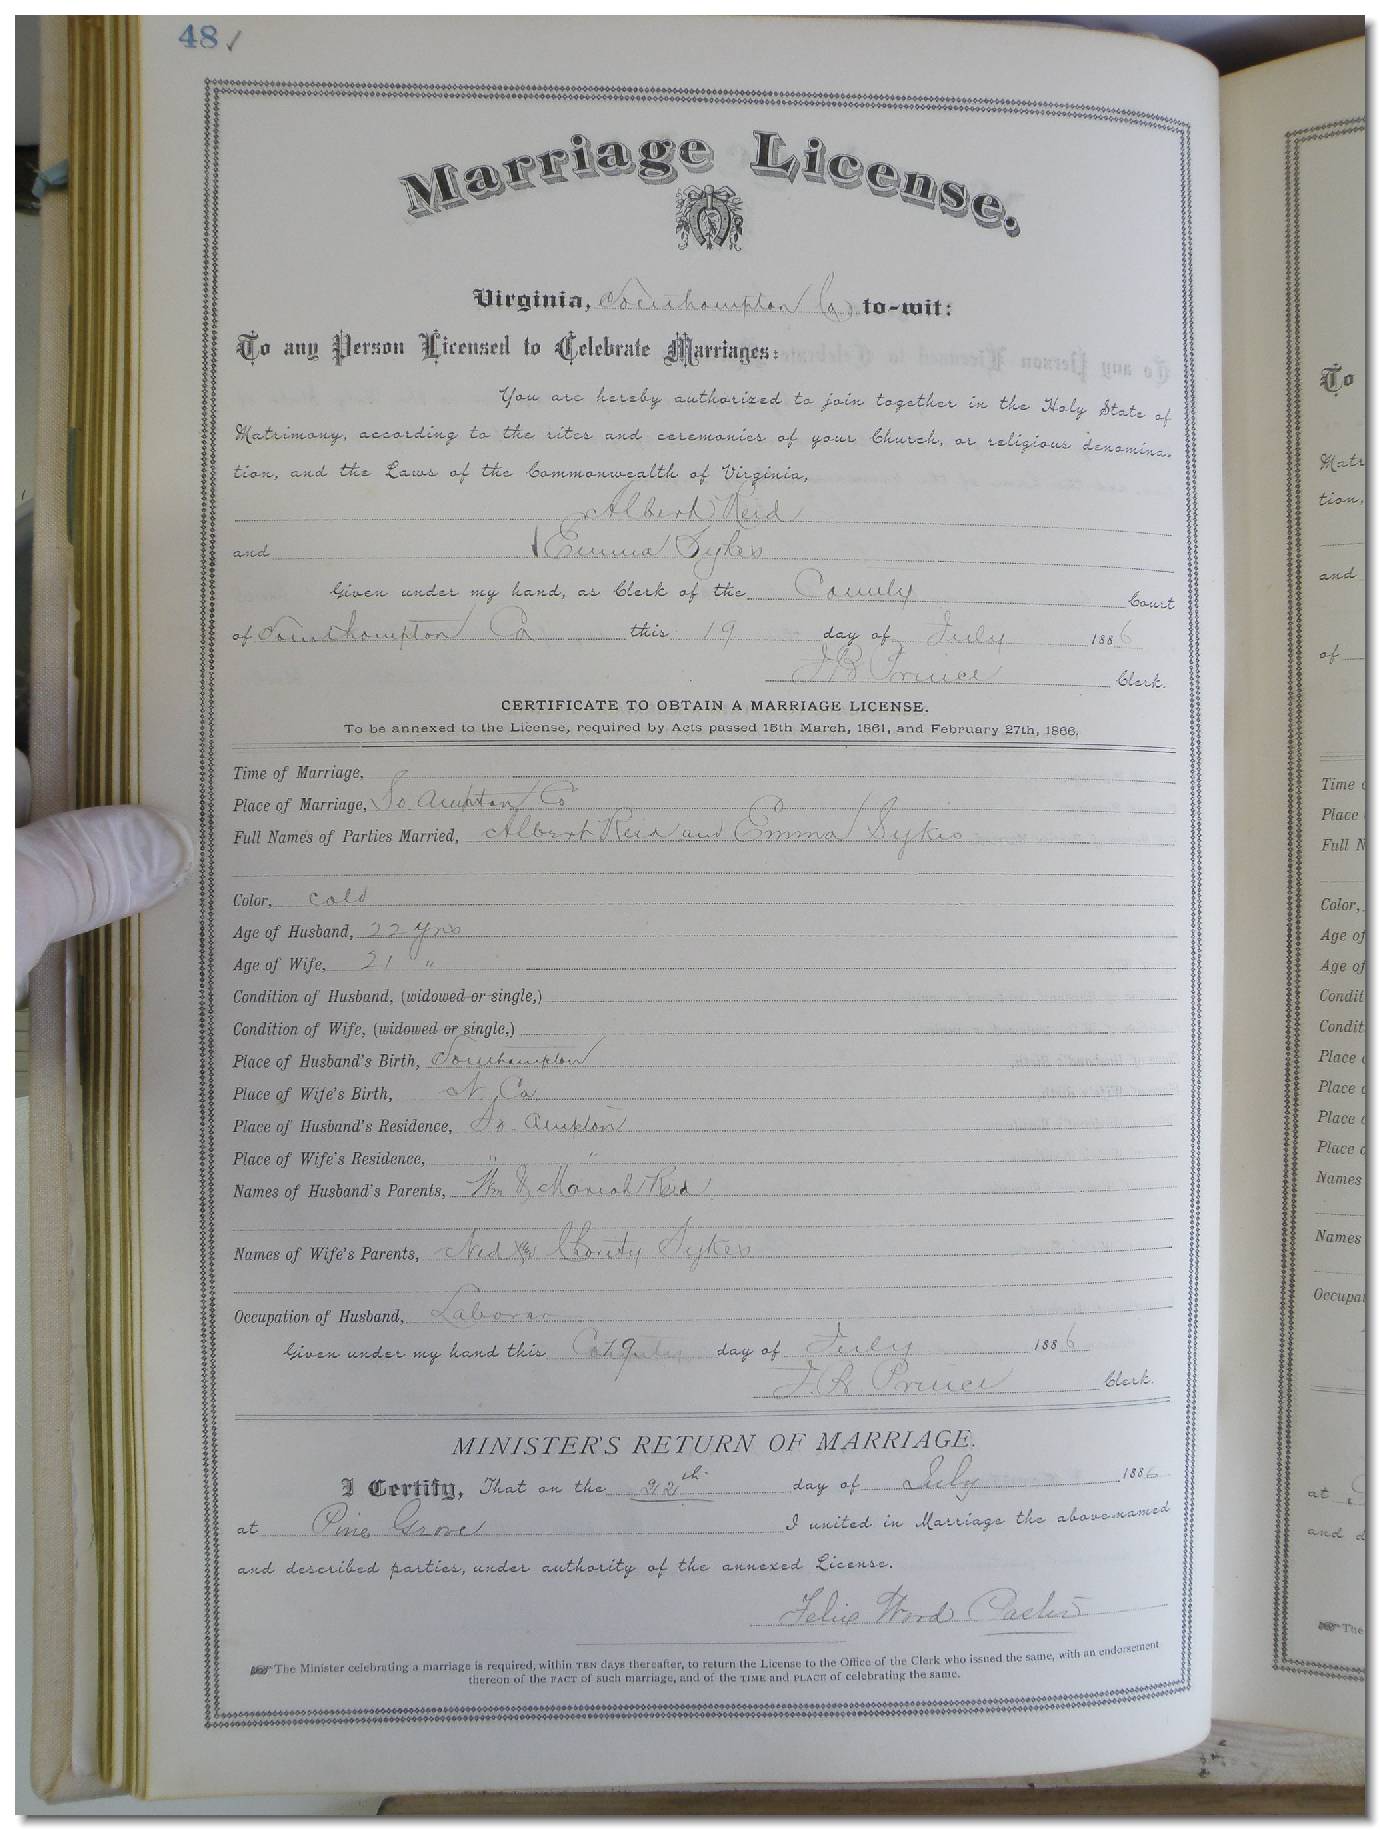 48 ✓
Marriage License.
Virginia, Southampton Co to-wit:
To any Person Licensed to Celebrate Marriages:
You are hereby authorized to join together in the Holy State of
Matrimony, according to the rites and ceremonies of your Church, or religious denomina-
tion, and the Laws of the Commonwealth of Virginia,
Albert Reid
and Emma Sykes
Given under my hand, as Clerk of the County Court
of Southampton Co this 19 day of July 1886
J B Prince Clerk.
CERTIFICATE TO OBTAIN A MARRIAGE LICENSE.
To be annexed to the License, required by Acts passed 15th March, 1861, and February 27th, 1866.
Time of Marriage,
Place of Marriage, So. ampton Co
Full Names of Parties Married, Albert Reid and Emma Sykes
Color, cold
Age of Husband, 22 yrs
Age of Wife, 21 "
Condition of Husband, (widowed or single,)
Condition of Wife, (widowed or single,)
Place of Husband's Birth, Southampton
Place of Wife's Birth, N. Ca
Place of Husband's Residence, So. ampton
Place of Wife's Residence, " "
Names of Husband's Parents, Wm & Mariah Reid
Names of Wife's Parents, Ned & Charity Sykes
Occupation of Husband, Laborer
Given under my hand this 19 day of July 1886
J. B. Prince Clerk.
MINISTER'S RETURN OF MARRIAGE.
I Certify, That on the 22th day of July 1886
at Pine Grove I united in Marriage the above-named
and described parties, under authority of the annexed License.
Felix Wood Pastor
The Minister celebrating a marriage is required, within TEN days thereafter, to return the License to the Office of the Clerk who issued the same, with an endorsement
thereon of the FACT of such marriage, and of the TIME and PLACE of celebrating the same.
To
Matr
tion,
and
of
Time
Place
Full N
Color,
Age of
Age of
Condit
Condit
Place
Place
Place
Place
Names
Names
Occupat
at
and d
The